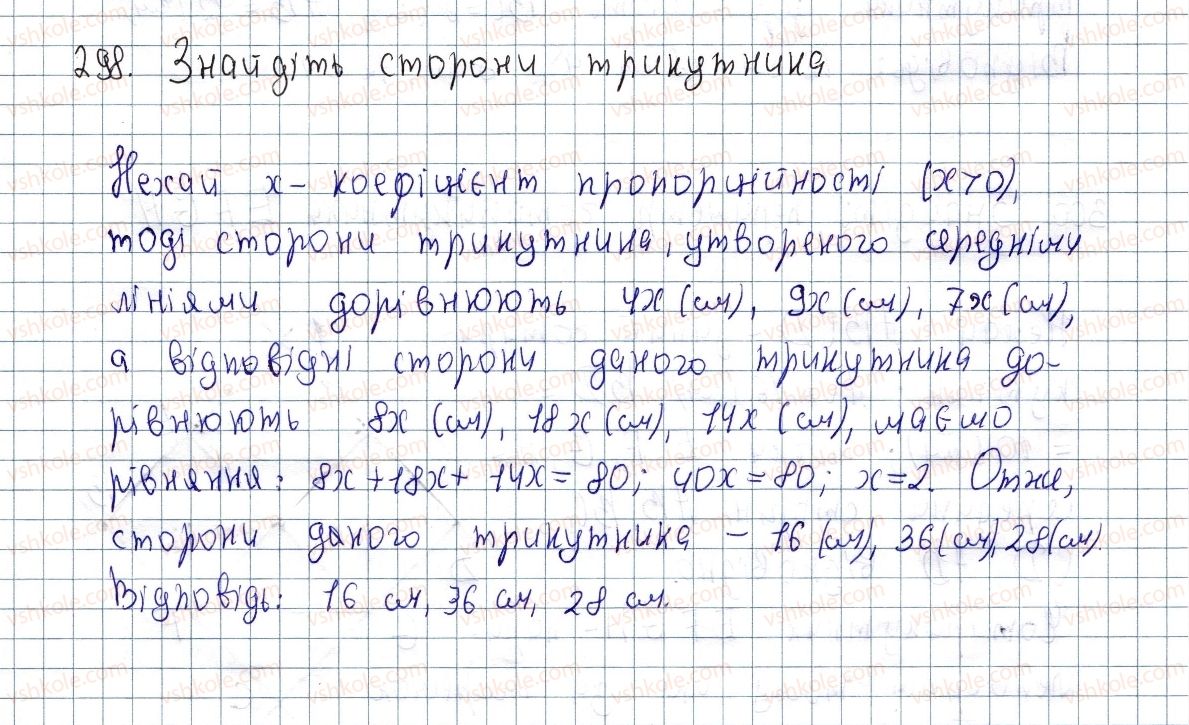 298. Знайдіть сторони трикутника
Нехай х – коефіцієнт пропорційності (х>0),
тоді сторони трикутника, утвореного середніми
лініями дорівнюють 4х (см), 9х (см), 7х (см),
а відповідні сторони даного трикутника до-
рівнюють 8х (см), 18х (см), 14х (см), маємо
рівняння: 8х+18х+14х=80; 40х=80; х=2. Отже,
сторони даного трикутника – 16 (см), 36 (см), 28 (см).
Відповідь: 16 см, 36 см, 28 см.